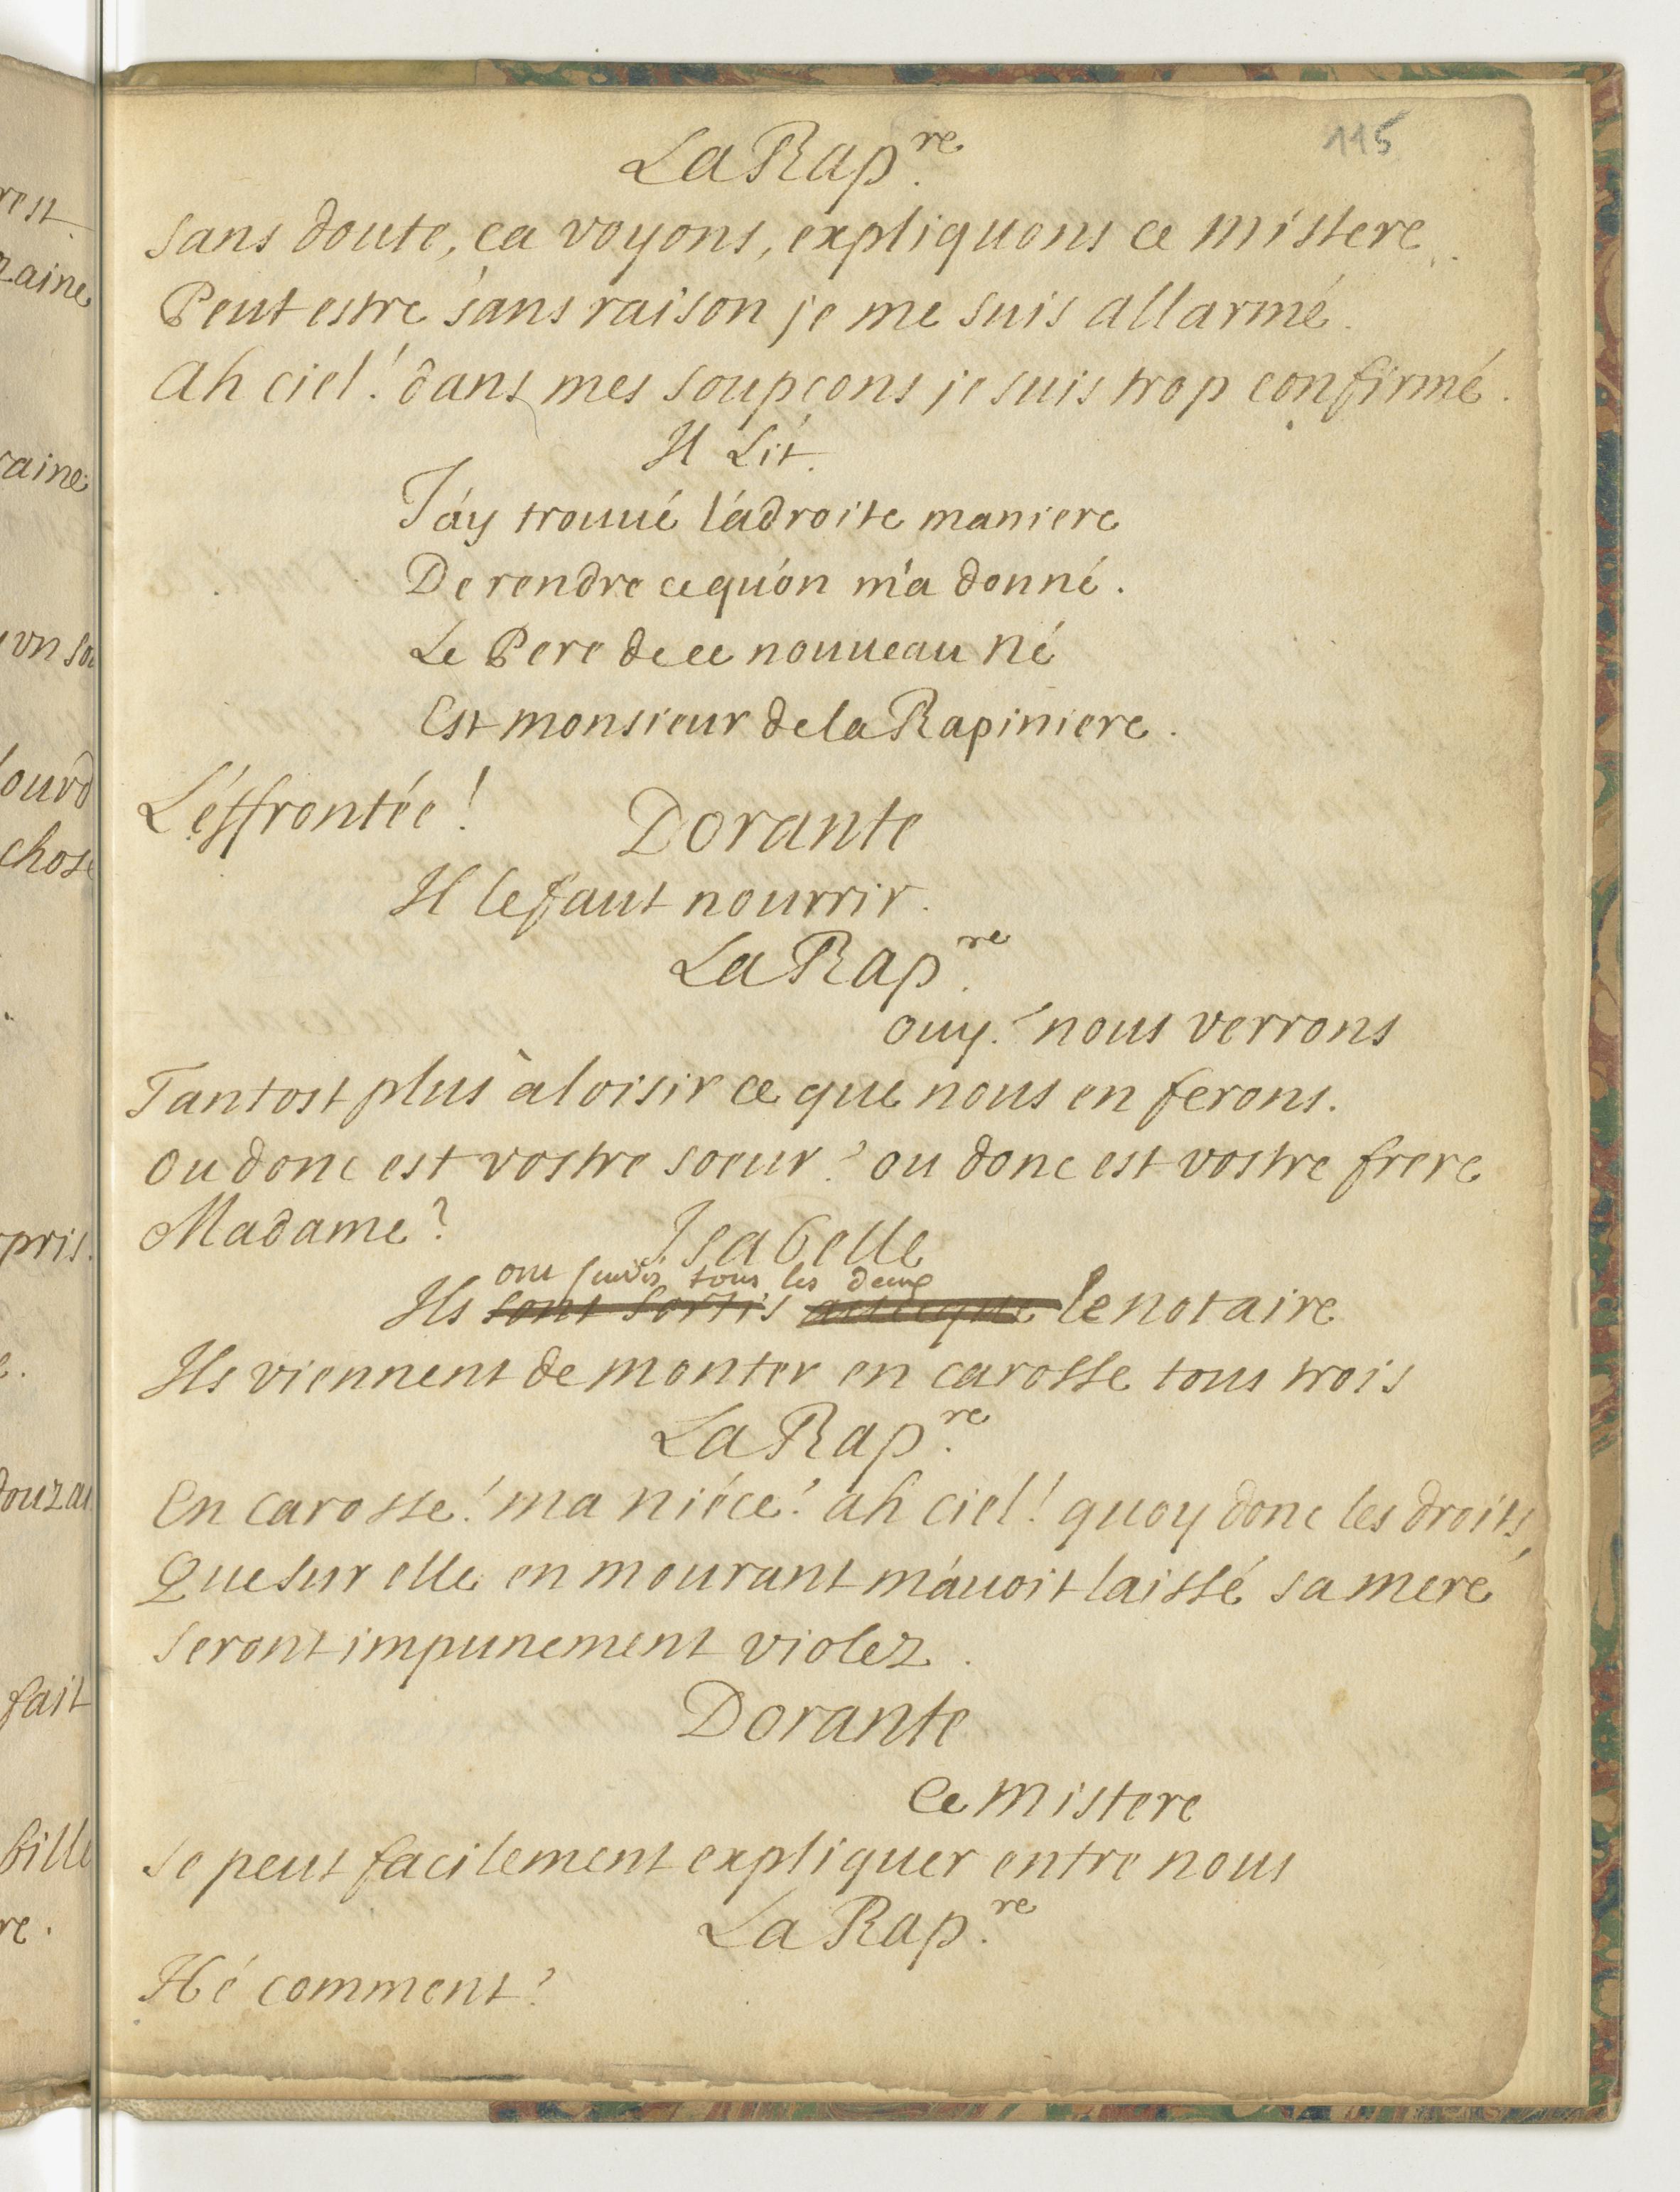 115
La Rap.re
sans doute, ca voyons, expliquons ce mistere.
Peut estre sans raison je me suis allarmé.
Ah ciel! dans mes soupçons je suis trop confirmé.
Il Lit.
J'ay trouué l'adroite maniere
De rendre ce qu'on m'a donné.
Le Pere de ce nouueau né
Est monsieur de la Rapiniere.
L'effrontée!
Dorante
Il le faut nourrir.
La Rap.re
ouy! nous verrons
Tantost plus à loisir ce que nous en ferons.
ou donc est vostre soeur? ou donc est vostre frere
Madame?
Isabelle
ont suivis tous les deux
Ils sont sortis auecque le notaire
Ils viennent de monter en carosse tous trois
La Rap.re
En carosse! ma niéce! ah ciel! quoy donc les droits
Que sur elle en mourant m'auoit laissé sa mere
seront impunement violez.
Dorante
Ce mistere
se peut facilement expliquer entre nous
La Rap.re
Hé comment?
rest.
zaine
raine
vn so
lourd
chose
pris.
douzai
fait
bille
re.